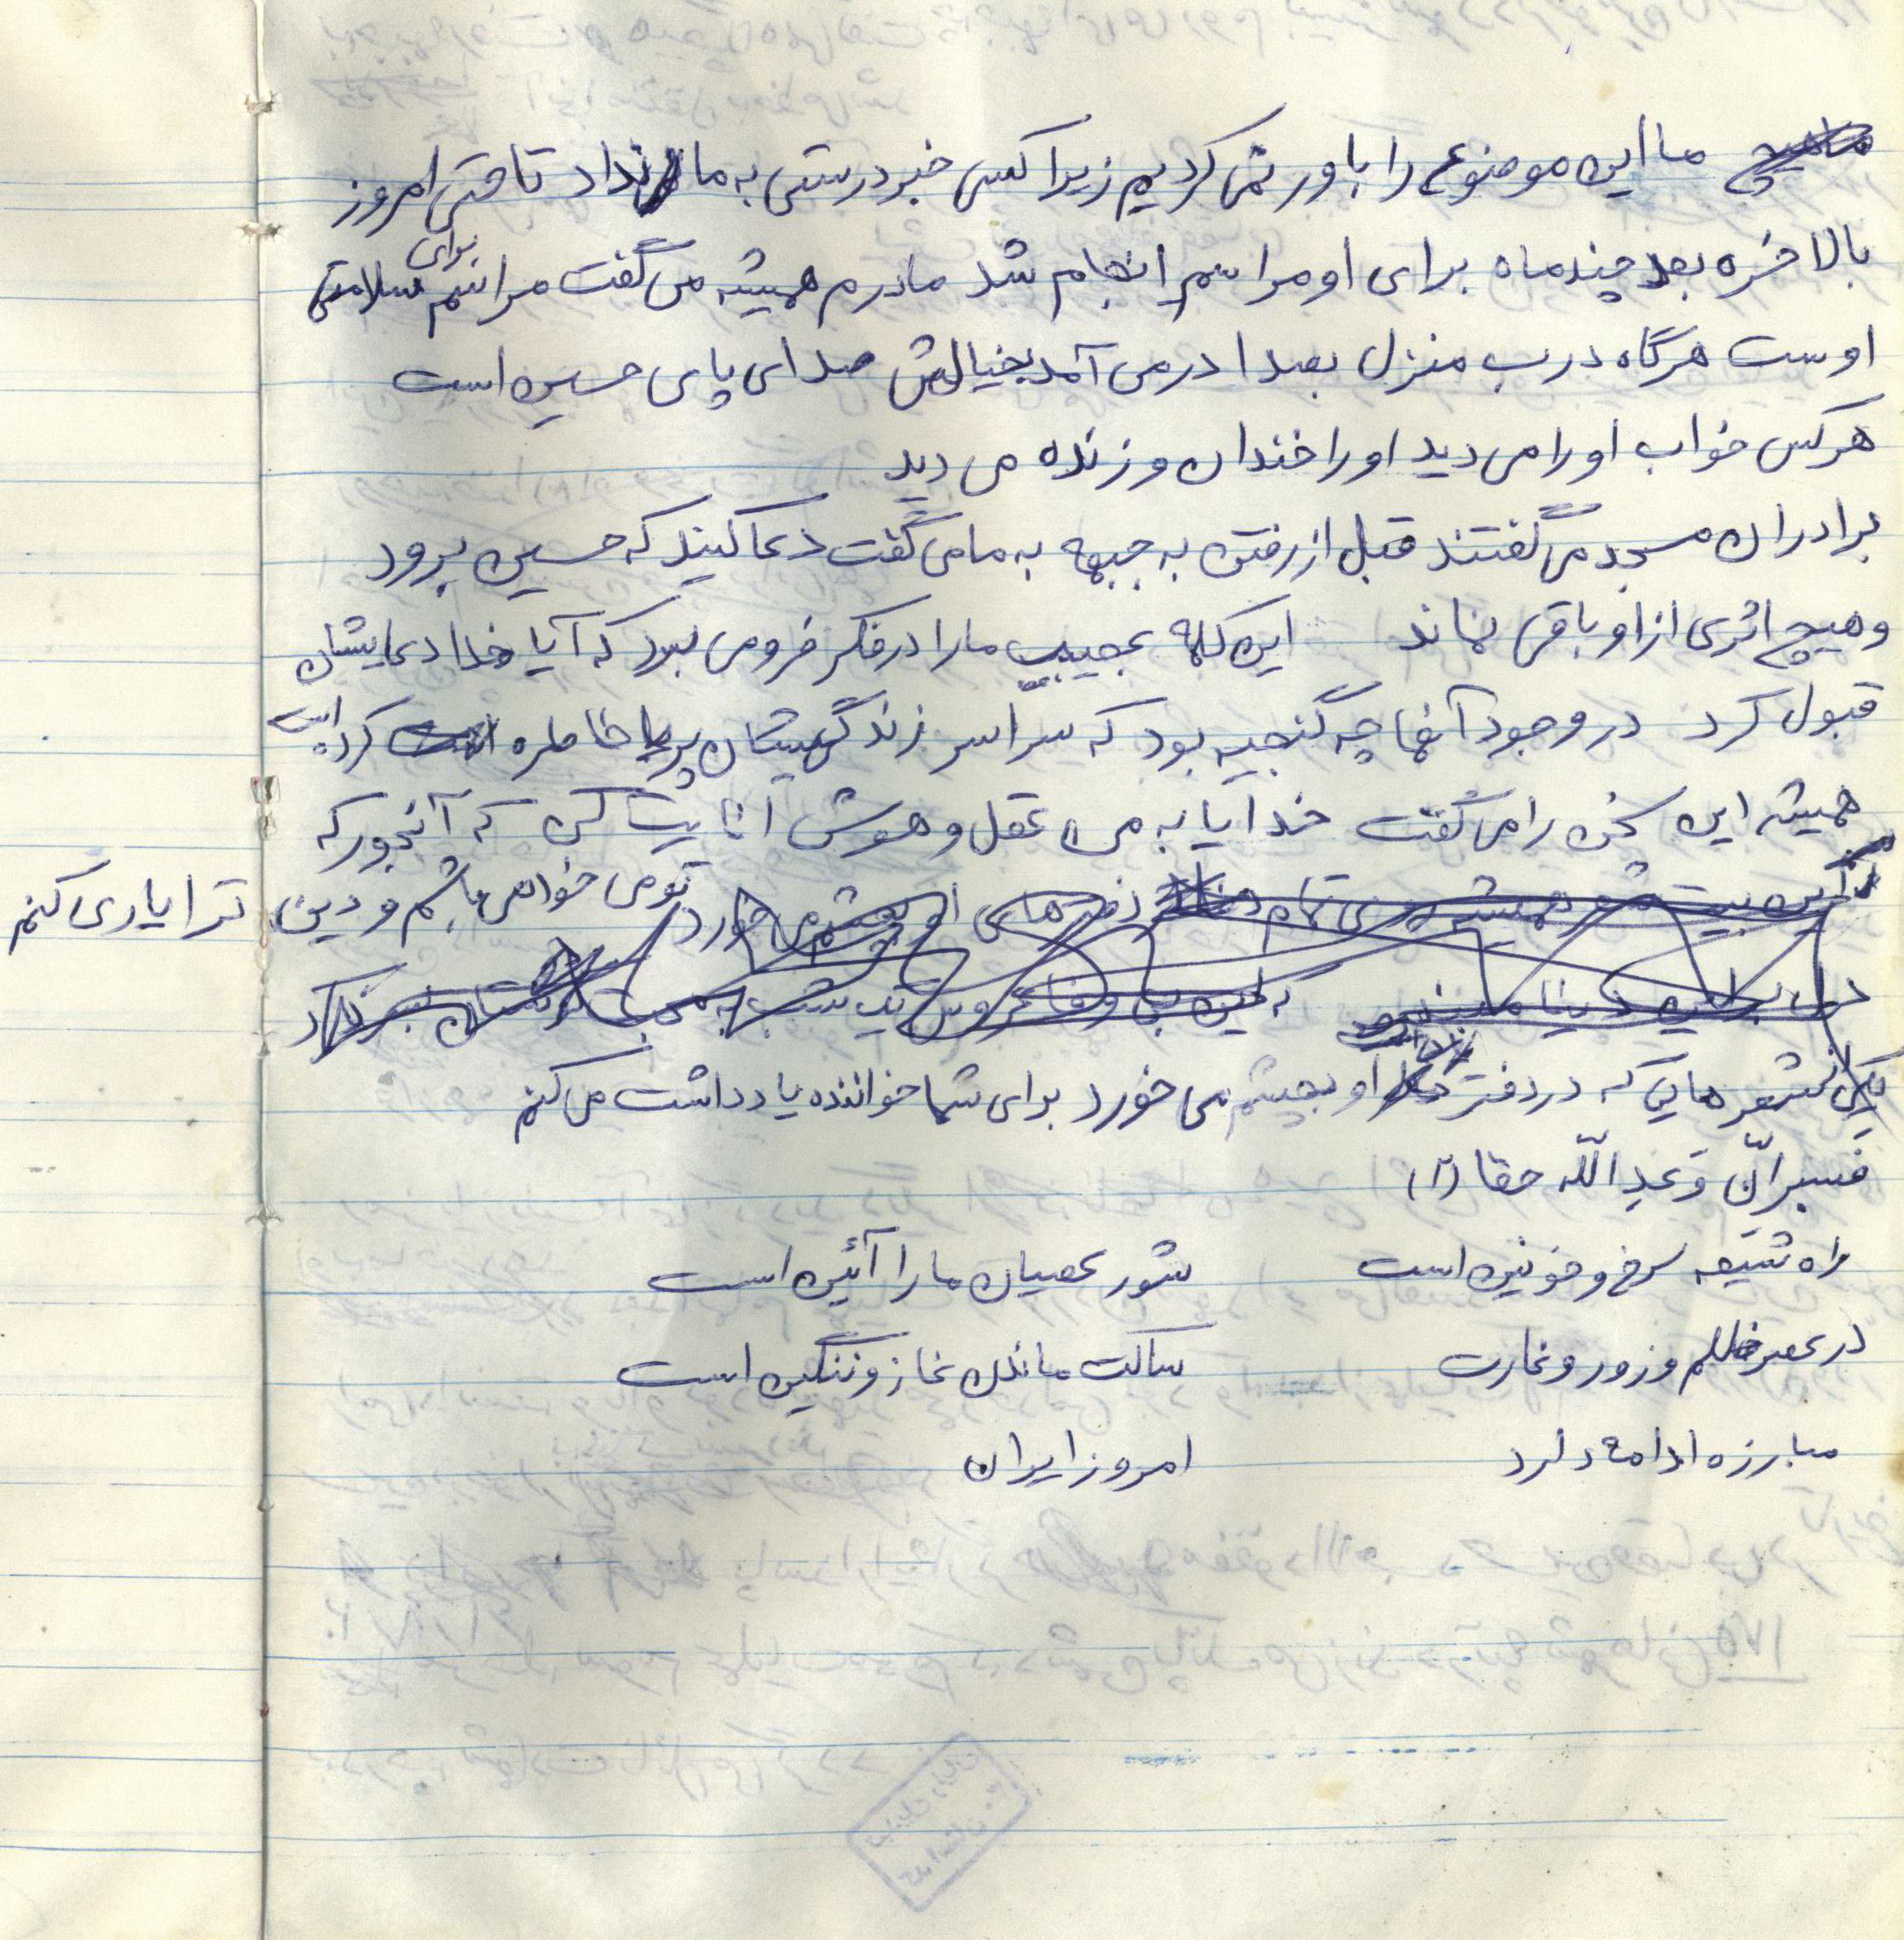 ما این موضوع را باور نمی کردیم زیرا کسی خبر درستی به ما نداد تا حتی امروز
بالاخره بعد چند ماه برای او مراسم انجام شد مادرم همیشه می گفت مراسم برای سلامتی
اوست هرگاه درب منزل بصدا در می آمد بخیالش صدای پای حسین است
هر کس خواب او را می دید او را خندان و زنده می دید
برادران مسجد می گفتند قبل از رفتن به جبهه به ما می گفت دعا کنید که حسین برود
و هیچ اثری از او باقی نماند این کلمه عجیب ما را در فکر فرو می برد که آیا خدا دعایشان
قبول کرد در وجود آنها چه گنجینه بود که سراسر زندگیشان پر خاطره کرده است
همیشه این سخن را می گفت خدایا به من عقل و هوش عنایت کن که آنجور که
تو می خواهی باشم و دین ترا یاری کنم
شعرهایی که در دفتر او بچشم می خورد برای شما خواننده یادداشت می کنم
فسیر انّ وَعدِ اللّه حقا (۲)
راه شیعه سرخ و خونین است شور عصیان ما را آئین است
در عصر ظلم و زور و غارت ساکت ماندن نماز و ننگین است
مبارزه ادامه دارد امروز ایران